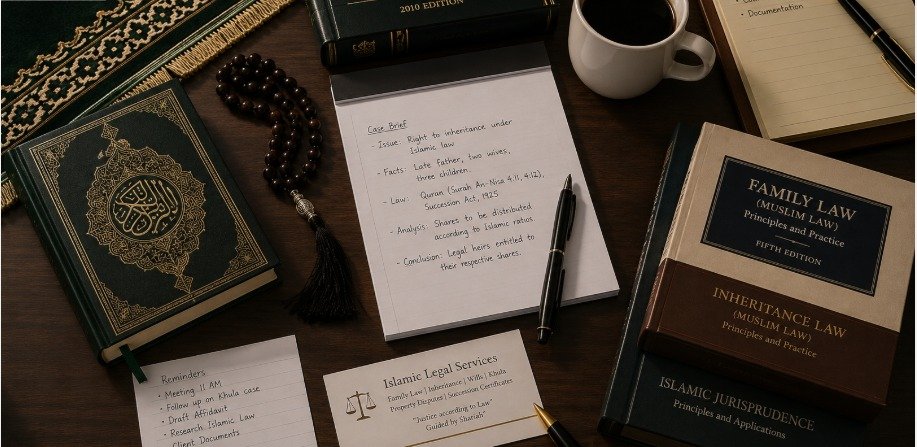 2010 EDITION
Documentation
Case Brief
- Issue: Right to inheritance under
Islamic law
- Facts: Late father, two wives,
three children.
- Law: Quran (Surah An-Nisa 4:11, 4:12),
Succession Act, 1925
- Analysis: Shares to be distributed
according to Islamic ratios.
- Conclusion: Legal heirs entitled to
their respective shares.
FAMILY LAW
(MUSLIM LAW)
Principles and Practice
FIFTH EDITION
INHERITANCE LAW
(MUSLIM LAW)
Principles and Practice
ISLAMIC JURISPRUDENCE
Principles and Applications
Reminders
• Meeting 11 AM
• Follow up on Khula case
• Draft Affidavit
• Research Islamic Law
• Client Documents
Islamic Legal Services
Family Law | Inheritance | Wills | Khula
Property Disputes | Succession Certificates
"Justice according to Law"
Guided by Shariah"